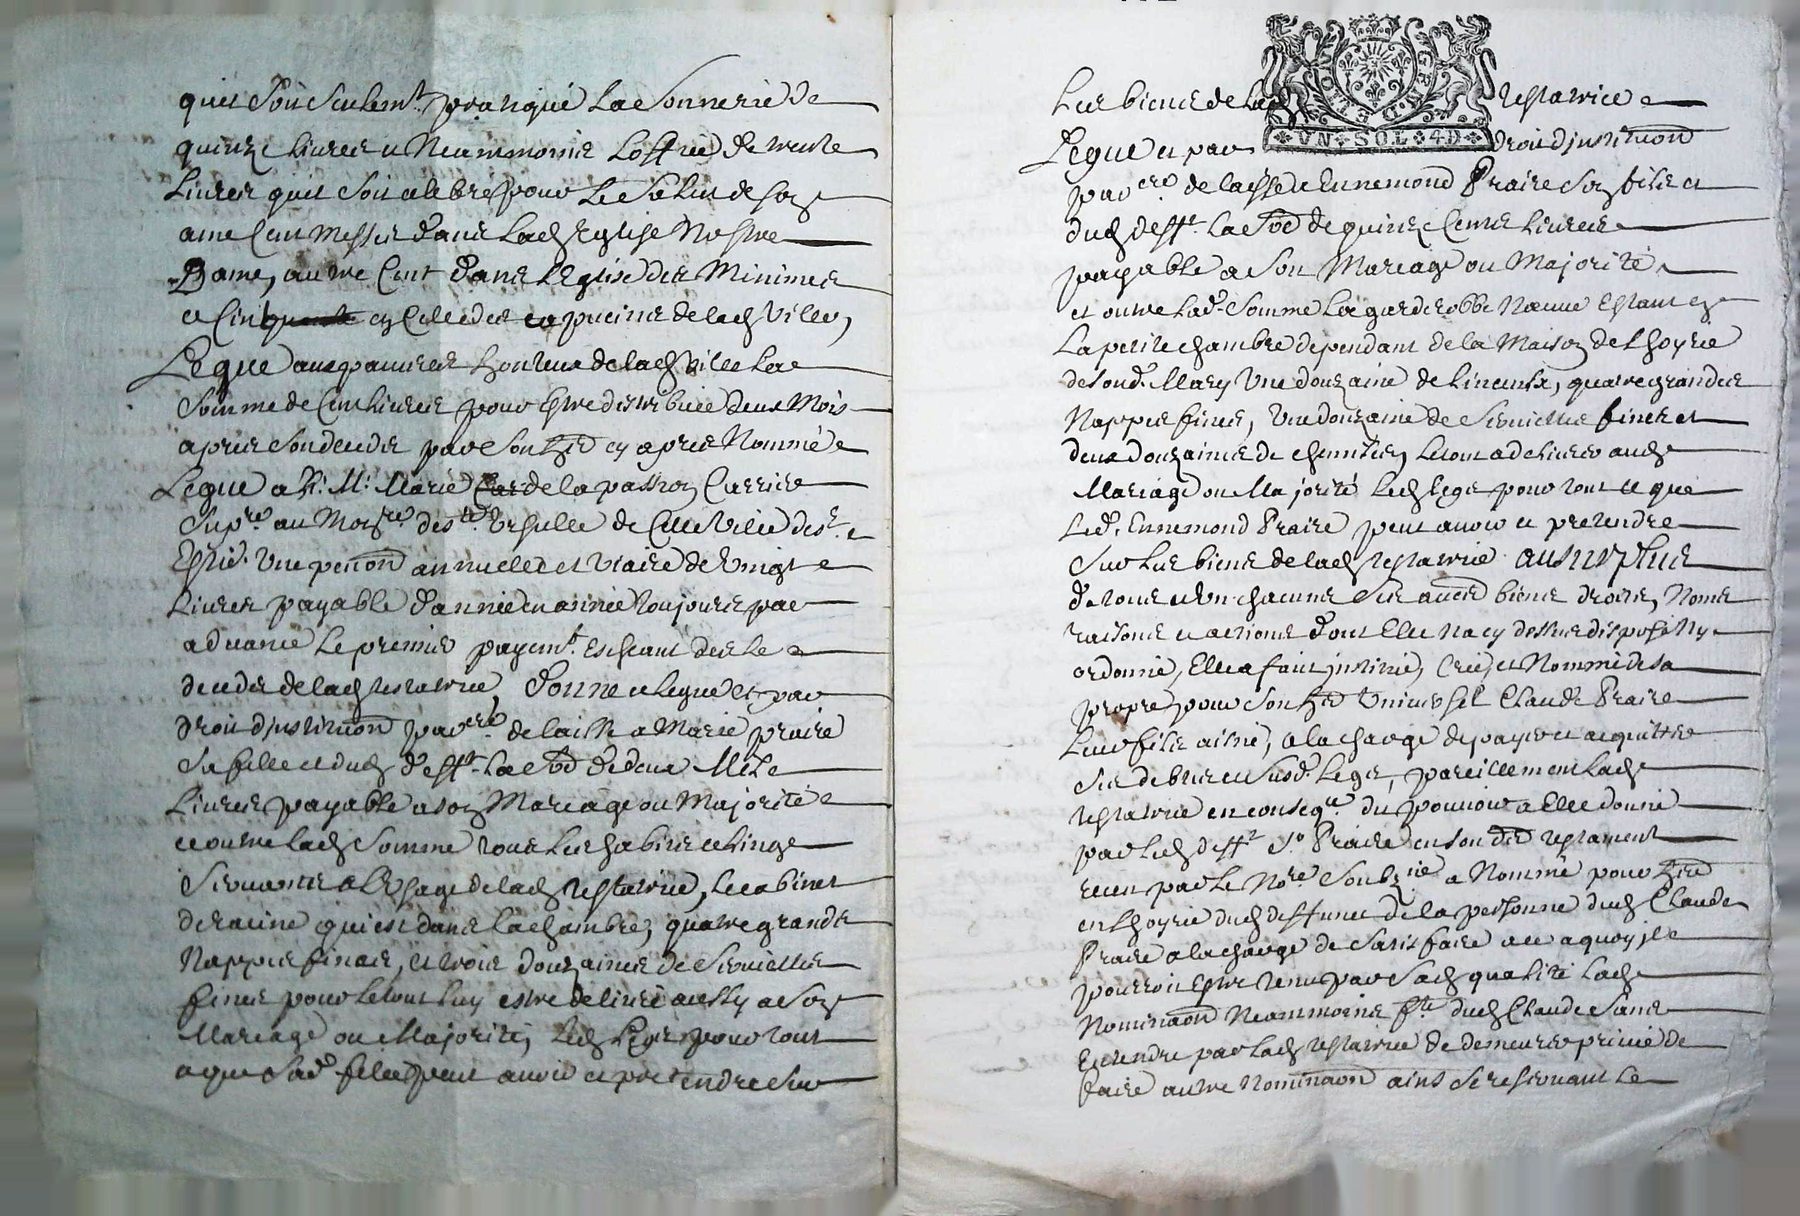 quil soit seulemt. pratiqué la sonnerie de
quinze livres et neanmoins loffice de trente
livres quil soit celebré pour le salut de son
ame cent messes dans lad. Eglise Nostre
Dame, autre cent dans lEglise des Minimes
et cinquante en celle des capucins de lad. ville,
Legue aux pauvres honteux de lad. ville la
somme de cent livres pour estre distribuée deux mois
apres son decedz par son her. cy apres nommé
Legue a Marie de la passion Carrier
supre. au Mone. des Ursulle de cette ville de St.
Estie. une pention annuelle et viaire de vingt
livres payable dannée en année toujours par
advance le premier payemt. escheant des le
decedz de lad. testatrice, donne et legue et par
droit dinstituon parere. delaisse a Marie praire
sa fille et dud. defft. la so de deux mil
livres payable a son Mariage ou Majorité
et outre lad. somme tous les habits et linge
servants a lusage de lad. testatrice, le cabinet
de racine qui est dans la chambre, quatre grandes
nappes fines, et trois douzaines de serviettes
fines pour le tout luy estre delivré aussy a son
Mariage ou Majorité, led. legs pour tout
ce que sad. fille peut avoir et pretendre sur
les biens de lad. testatrice
Legue et par droit dinstituon
parere. delaisse a Ennemond Praire son fils et
dud. defft. la so de quinze cents livres
payable a son Mariage ou Majorité
et outre lad. somme la garderobbe neuve estant en
la petite chambre dependant de la Maison de lhoyrie
de sond. Mary une douzaine de linceulx, quatre grandes
Nappes fines, une douzaine de serviettes fines et
deux douzaines de chemises, le tout a delivrer aud.
Mariage ou Majorité led. legs pour tout ce que
led. Ennemond Praire peut avoir et pretendre
sur les biens de lad. testatrice au surplus
de tous et un chacuns ses autres biens droits, noms
raisons et actions dont elle na cy dessus disposé ny
ordonné, Elle a fait institué, créé et Nommé de sa
propre pour son her. universel Claude Praire
leur fils aisné, a la charge de payer et acquitter
ses debtes et susd. legs, pareillement lad.
testatrice en conseqce. du pouvoir a Elle donné
par led. defft. sr. Praire en son dr testament
receu par le Nore. soubzné a Nommé pour her
en lhoyrie dud. deffunct de la personne dud. Claude
Praire a la charge de satisfaire a ce a quoy il
pourroit Estre tenu par sad. qualité lad.
Nominaon Neanmoins fte. dud. Claude sans
Entendre par lad. testatrice de demeurer privée de
faire autre Nominaon ains se reservant le
GENE DE LYON
UN SOL 4D